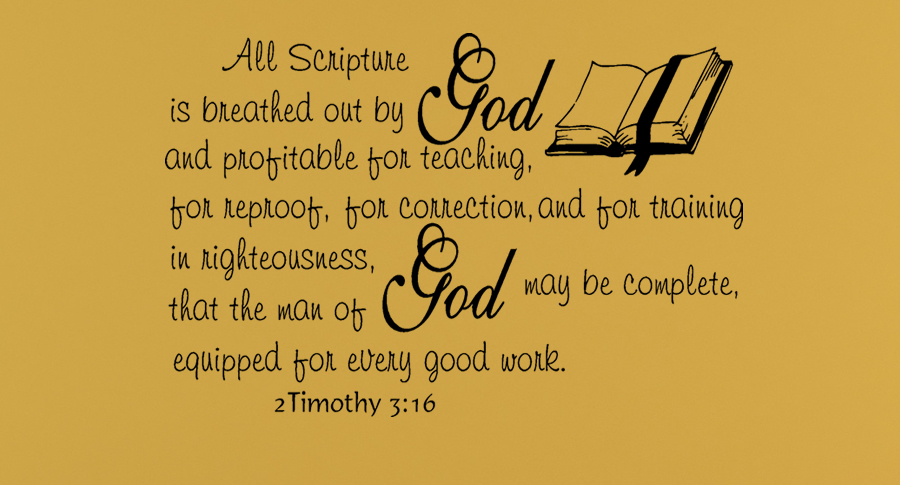 All Scripture
is breathed out by God
and profitable for teaching,
for reproof, for correction, and for training
in righteousness,
that the man of God may be complete,
equipped for every good work.
2Timothy 3:16